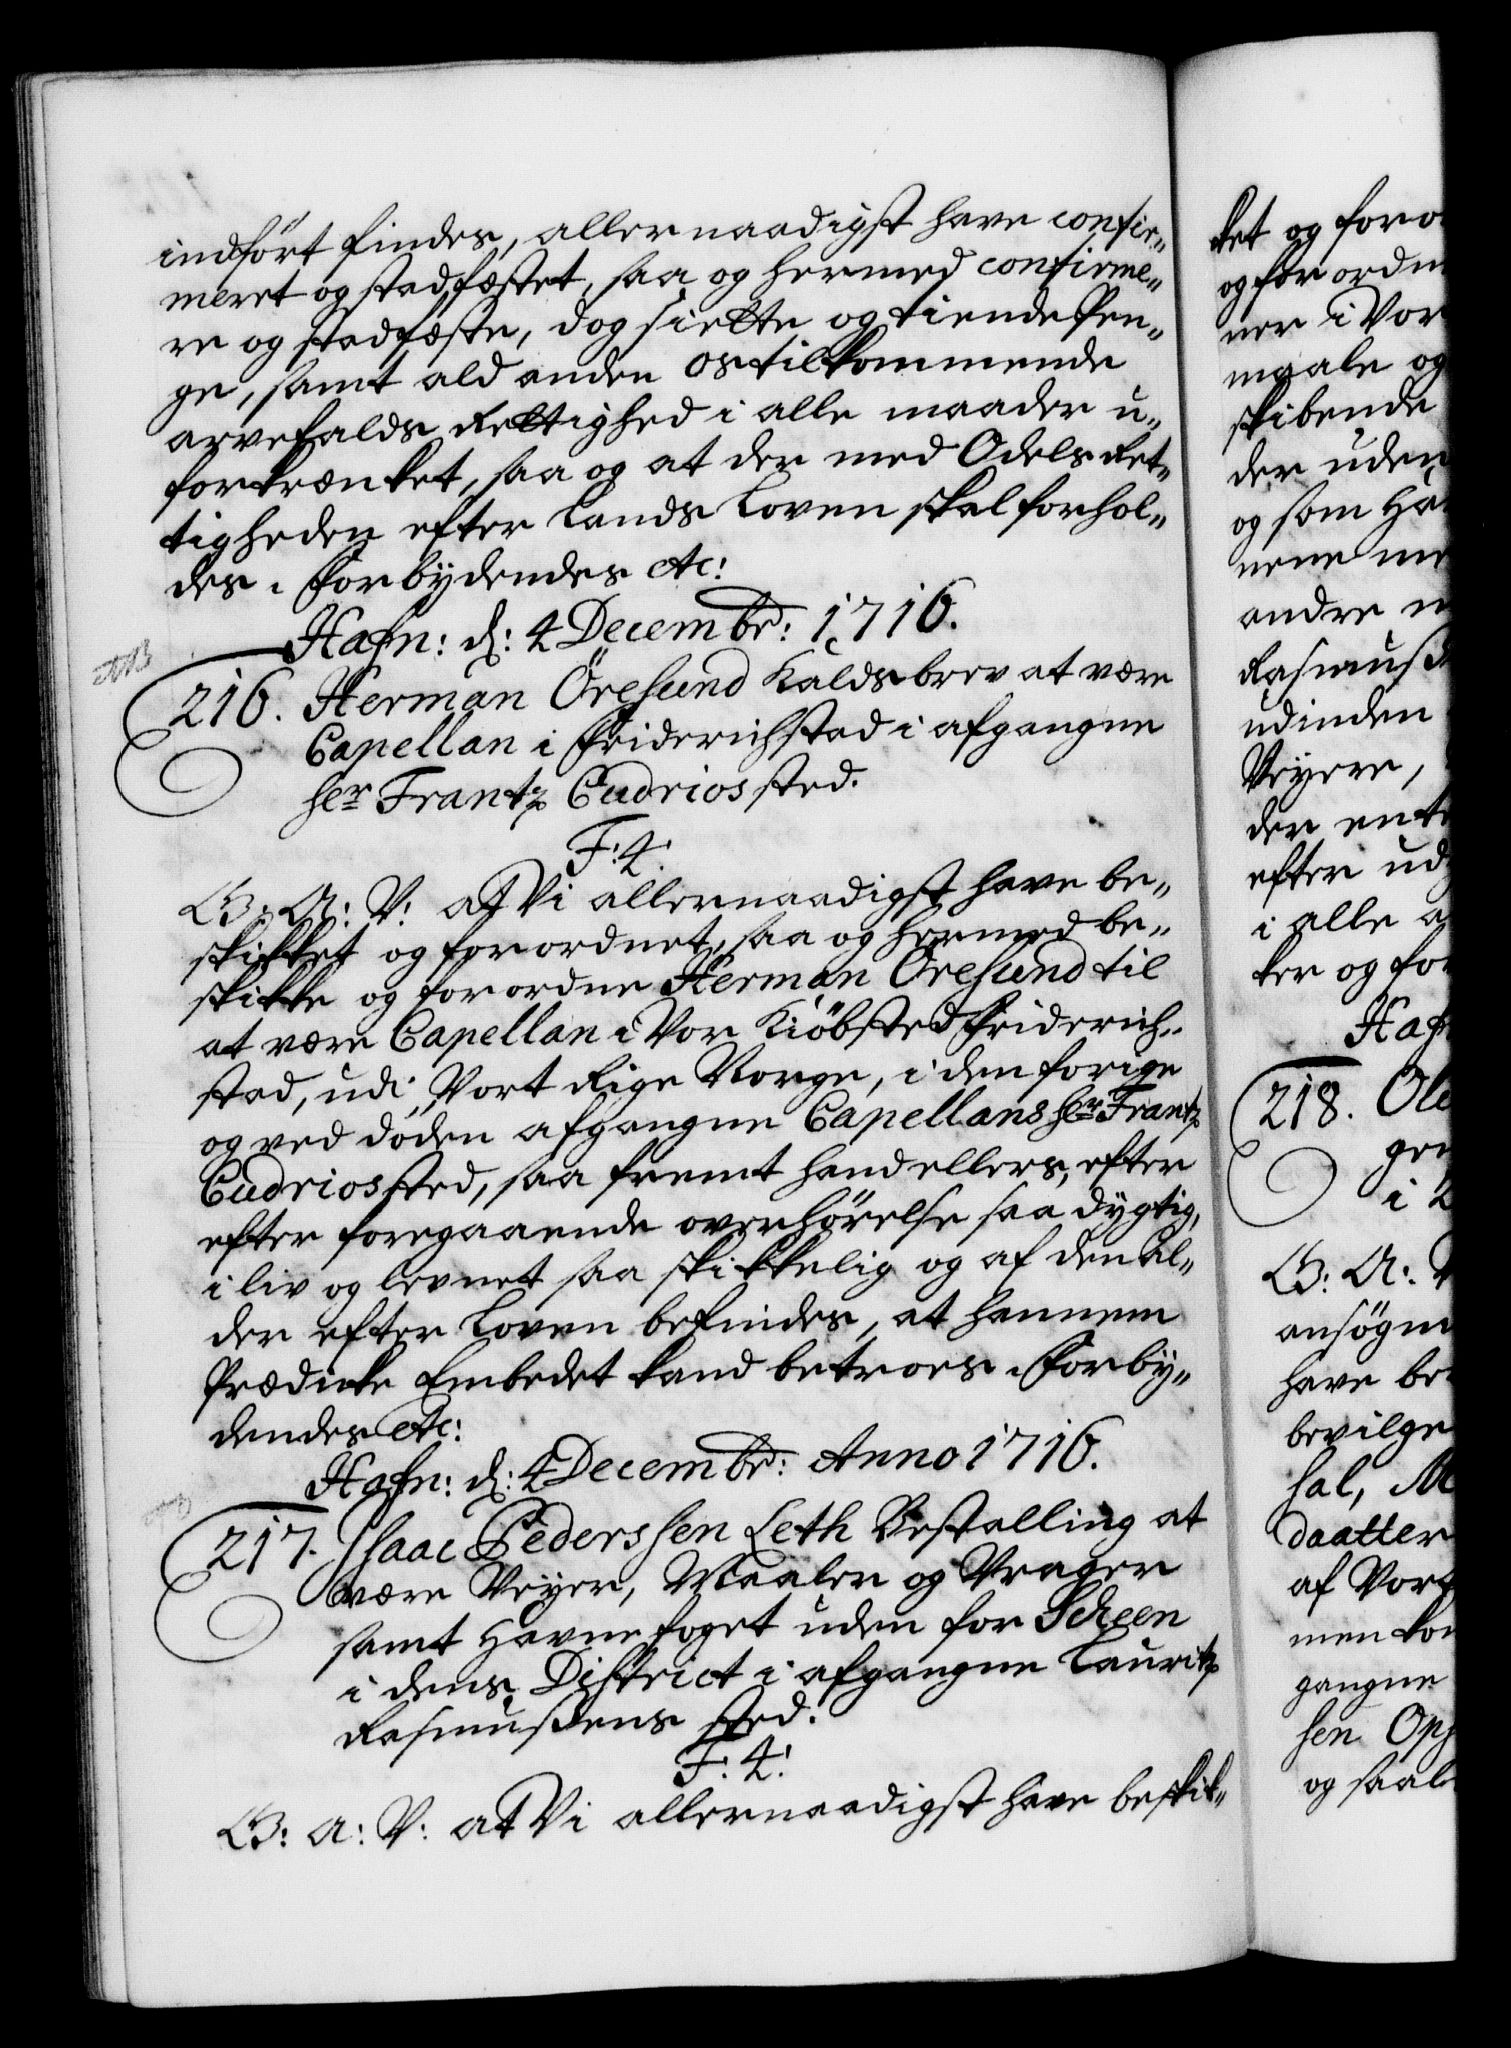 indført findes, allernaadigst have confir„
meret og stadfæstet, saa og hermed confirme„
re og stadfæste, dog siette og tiende Pen„
ge, samt ald anden os tilkommende
arvefalds Rettighed i alle maader u„
forkrænket, saa og at der med Odels Ret„
tigheden efter Lands Loven skal forhol„
des. Forbydendes etc:
Hafn: d: 4 Decembr: 1716.
NB
216. Herman Öresund Kaldsbrev at være
Capellan i Friderichstad i afgangne
Hr Frantz Cudrios sted.
F: 4.
G: A: V: at Vi allernaadigst have be„
skikket og forordnet, saa og hermed be„
skikke og forordne Herman Öresund til
at være Capellan i Vor Kiöbsted Friderich„
stad, udi Vort Rige Norge, i den forige
og ved döden afgangne Capellans Hr Frantz
Cudrios sted, saa fremt hand ellers, efter
efter foregaaende overhörelse saa dygtig,
i liv og levnet saa skikkelig og af den Al„
der efter Loven befindes, at hannem
Prædicke Embedet kand betroes. Forby„
dendes etc:
Hafn: d: 4 Decembr: Anno 1716.
217. Isaac Pederssen Leth Bestalling at
være Veyer, Maaler og Vrager
samt Havne foget uden for Scheen
i dens District i afgangne Lauritz
Rasmussens sted.
F: 4:
G: A: V: at Vi allernaadigst have beskik„
ket og foror
og for ordn
ner i Vor
maale og
skibende
der uden
og som Ha
nene me
andre
Rasmuss
udinden
Veyere,
der ent
efter ud
i alle a
ker og for
Hafn
218. Ole
gen
i
G: A: V
ansögn
have be
bevilge
hal, M
daatter
af Vort
men kon
gangne
sen Op
og saal